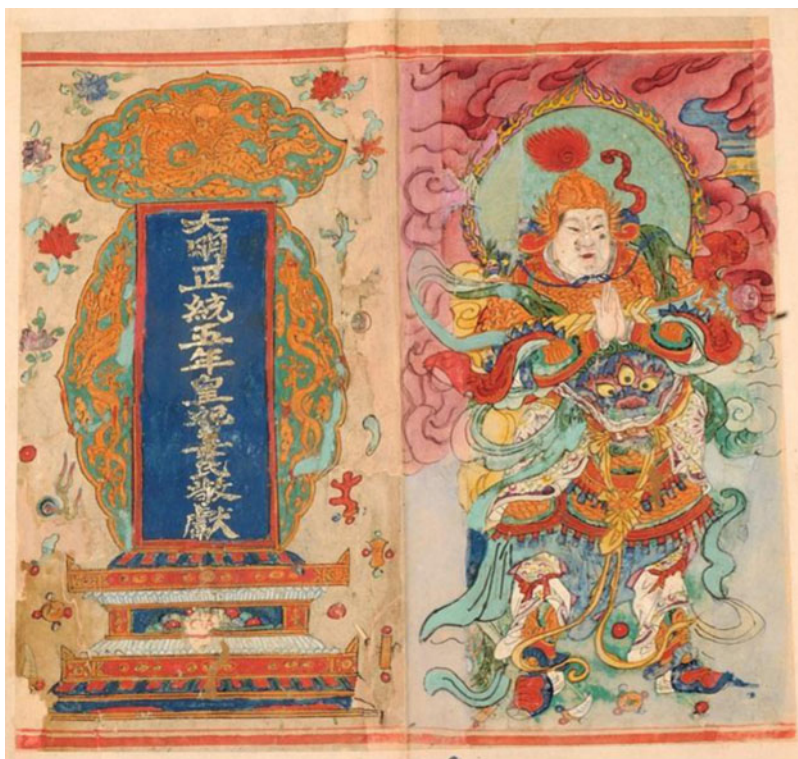 大明正統五年皇妃姜氏敬獻